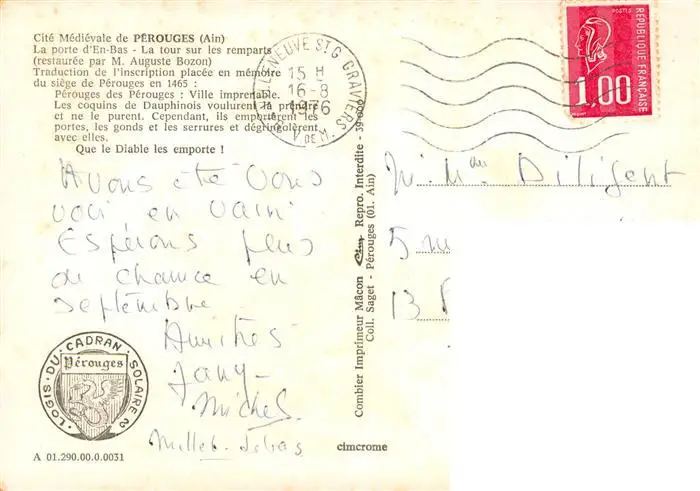 Cité Médiévale de PÉROUGES (Ain)
La porte d'En-Bas - La tour sur les remparts
(restaurée par M. Auguste Bozon)
Traduction de l'inscription placée en mémoire
du siège de Pérouges en 1465 :
Pérouges des Pérouges : Ville imprenable.
Les coquins de Dauphinois voulurent la prendre
et ne le purent. Cependant, ils emportèrent les
portes, les gonds et les serrures et dégringolèrent
avec elles.
Que le Diable les emporte !
Avons été vous
voir en vain
Espérons plus
de chance en
septembre
Amitiés
Jany
Michel
LOGIS·DU·CADRAN·SOLAIRE
Pérouges
A 01.290.00.0.0031
cimcrome
Combier Imprimeur Mâcon Cim Repro. Interdite - 39
Coll. Saget - Pérouges (01. Ain)
VILLENEUVE ST G
15 H
16-8
1976
V. DE M.
POSTES
REPUBLIQUE FRANÇAISE
1,00
M. Mme Diligent
5
13